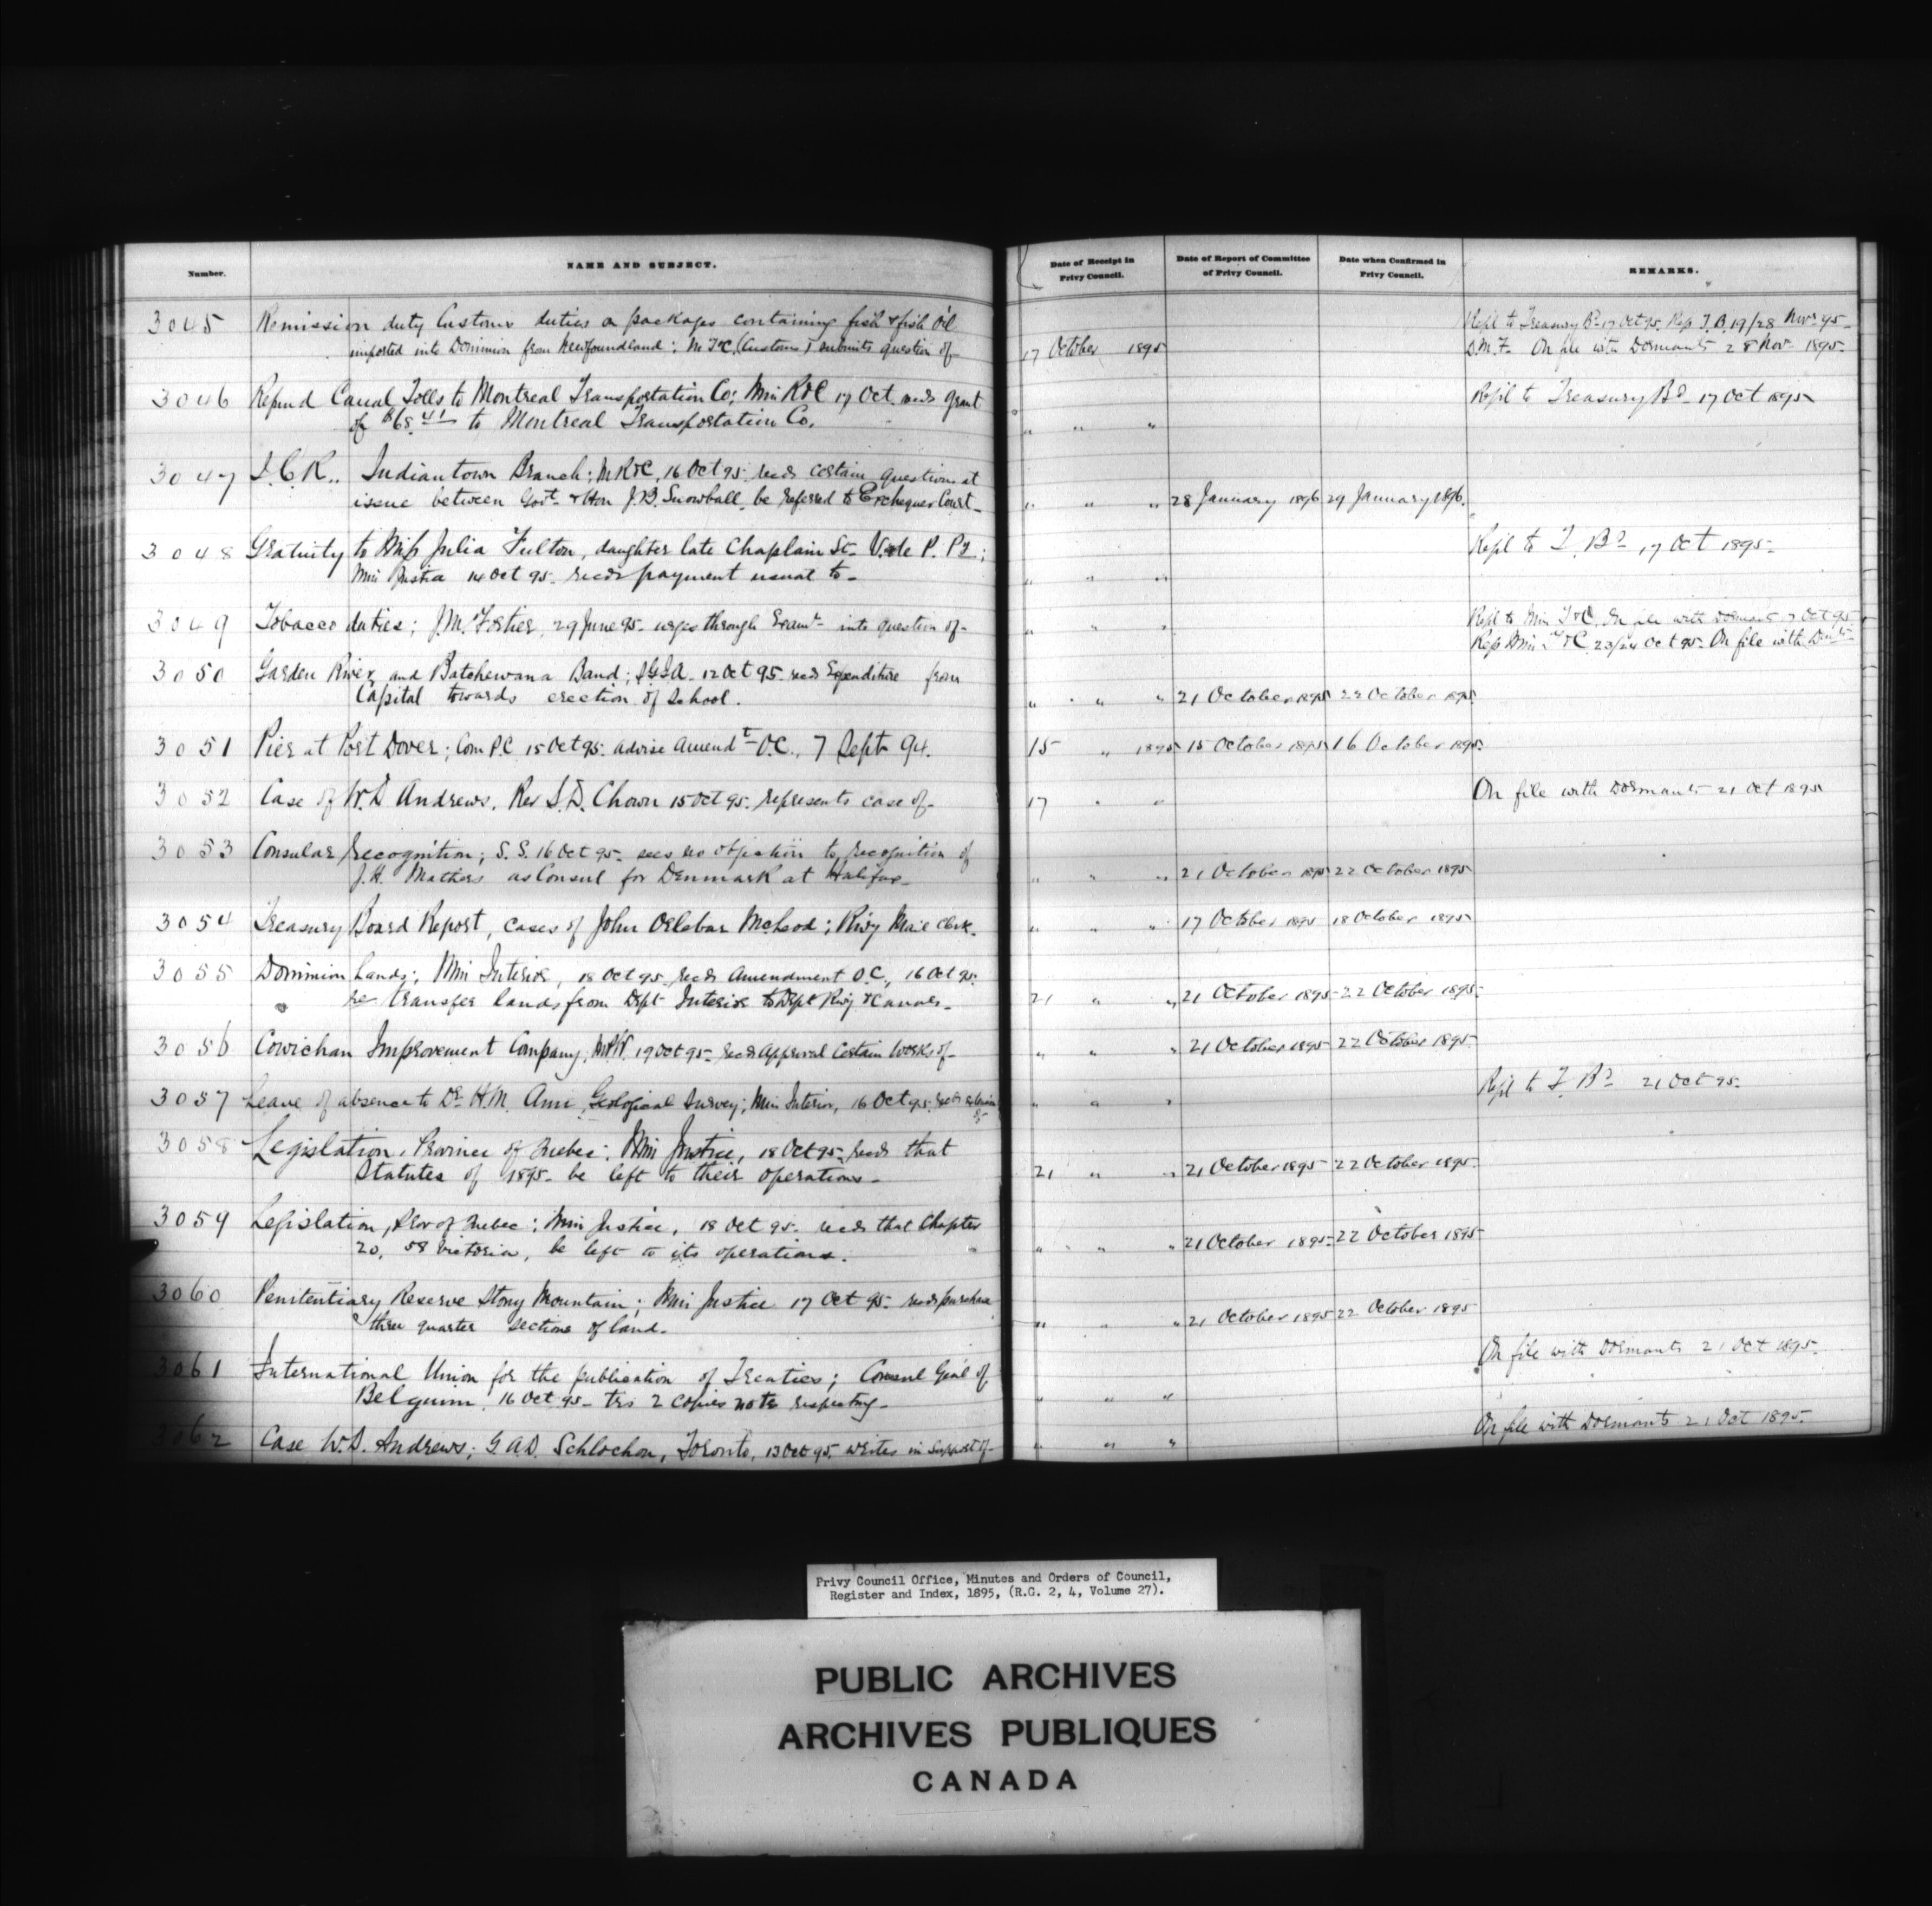 Number.
NAME AND SUBJECT.
Date of Receipt in Privy Council.
Date of Report of Committee of Privy Council.
Date when Confirmed in Privy Council.
REMARKS.
3045 Remission duty Customs duties on packages containing fish & fish Oil
imported into Dominion from Newfoundland; M T&C (Customs) submits question of- 17 October 1895
Refd to Treasury Bd 17 Oct 95. Rep T.B. 19/28 Novr 95-
On file with Dormants 28 Nov 1895.
3046 Refund Canal Tolls to Montreal Transportation Co; Min R&C 17 Oct. recds grant
of $68.41 to Montreal Transportation Co. " " "
Refd to Treasury Bd 17 Oct 1895
3047 I.C.R.. Indiantown Branch; M R&C, 16 Oct 95 recds certain questions at
issue between Govt & Hon J.B. Snowball, be referred to Exchequer Court- " " 28 January 1896 29 January 1896.
3048 Gratuity to Miss Julia Fulton, daughter late Chaplain St. V. de P. Py;
Min Justice 14 Oct 95- recds payment usual to- " " "
Refd to T. Bd 17 Oct 1895-
3049 Tobacco duties; J.M. Fortier, 29 June 95- urges through Examn into question of- " " "
Refd to Min T&C. On file with Dormants Oct 95
Rep Min T&C 23/24 Oct 95- On file with
3050 Garden River and Batchewana Band; SGIA. 12 Oct 95- recds Expenditure from
Capital towards erection of School. " " " 21 October 1895 22 October 1895
3051 Pier at Port Dover; Com P.C 15 Oct 95. advise Amendt O.C., 7 Sept 94. 15 " 1895 15 October 1895 16 October 1895
3052 Case of W.D Andrews. Rev S.D. Chown 15 Oct 95. represents case of- 17 " "
On file with Dormants 21 Oct 1895
3053 Consular recognition; S.S. 16 Oct 95- sees no objection to recognition of
J.H. Mathers as Consul for Denmark at Halifax- " " " 21 October 1895 22 October 1895
3054 Treasury Board Report, cases of John Orlebar McLeod; Rwy Mail Clerk. " " " 17 October 1895 18 October 1895
3055 Dominion Lands; Min Interior, 18 Oct 95- recds Amendment O.C., 16 Oct 95.
re transfer lands from Dept Interior to Dept Rwy & Canals- 21 " " 21 October 1895 22 October 1895
3056 Cowichan Improvement Company, MPW. 19 Oct 95- recds Approval Certain Works of- " " " 21 October 1895 22 October 1895
3057 Leave of absence to Dr H.M. Ami, Geological Survey; Min Interior, 16 Oct 95. recds extension of- " " "
Refd to T. Bd 21 Oct 95.
3058 Legislation, Province of Quebec; Min Justice, 18 Oct 95- recds that
Statutes of 1895- be left to their operations- 21 " " 21 October 1895 22 October 1895
3059 Legislation, Prov of Quebec; Min Justice, 18 Oct 95- recds that Chapter
20, 58 Victoria, be left to its operations. " " " 21 October 1895 22 October 1895
3060 Penitentiary Reserve Stony Mountain; Min Justice 17 Oct 95- recds purchase
three quarter sections of land. " " " 21 October 1895 22 October 1895
3061 International Union for the publication of Treaties; Consul Genl of
Belguim, 16 Oct 95- trs 2 copies note respecting- " " "
On file with Dormants 21 Oct 1895.
3062 Case W.D. Andrews; G A.D. Schlochon, Toronto, 13 Oct 95, writes in support of- " " "
On file with Dormants 21 Oct 1895.
Privy Council Office, Minutes and Orders of Council,
Register and Index, 1895, (R.G. 2, 4, Volume 27).
PUBLIC ARCHIVES
ARCHIVES PUBLIQUES
CANADA